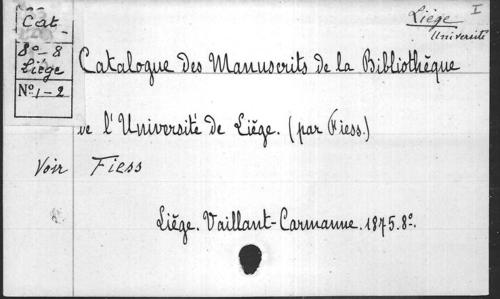 Cat
8º-8
Liége
Nº 1-2
Liége I
Université
Catalogue des Manuscrits de la Bibliothêque
de l'Université de Liége. (par Fiess.)
Voir Fiess
Liége. Vaillant-Carmanne. 1875. 8º.